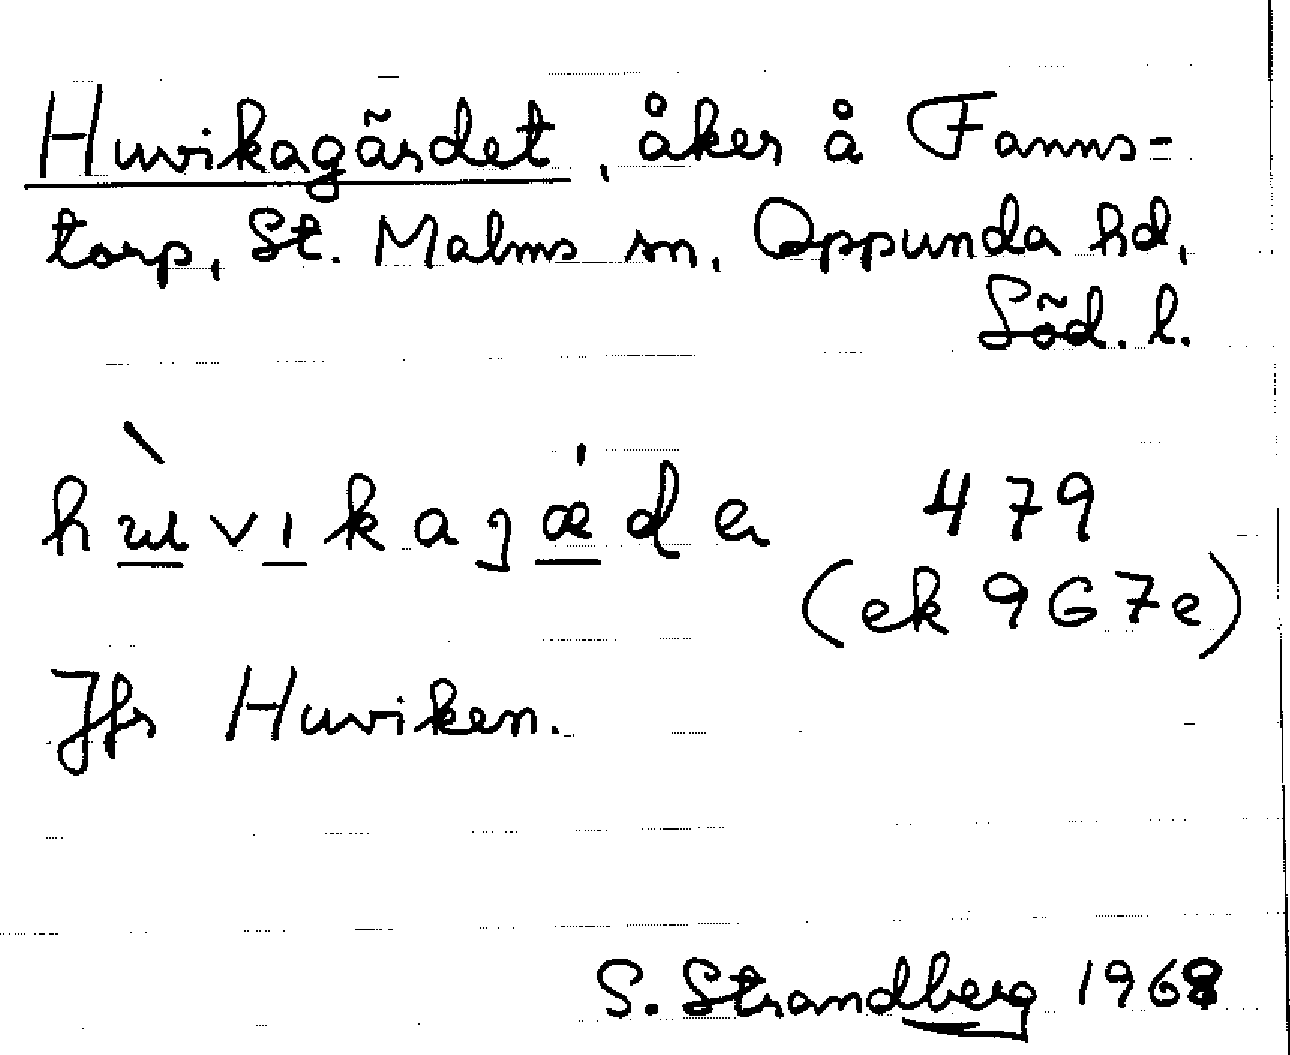 Huvikagärdet, åker å Fanns-
torp, St. Malms sn, Oppunda hd,
Söd. l.
hɯ̀vıkagǽdɐ 479
(ek 967e)
Jfr Huviken.
S. Strandberg 1968